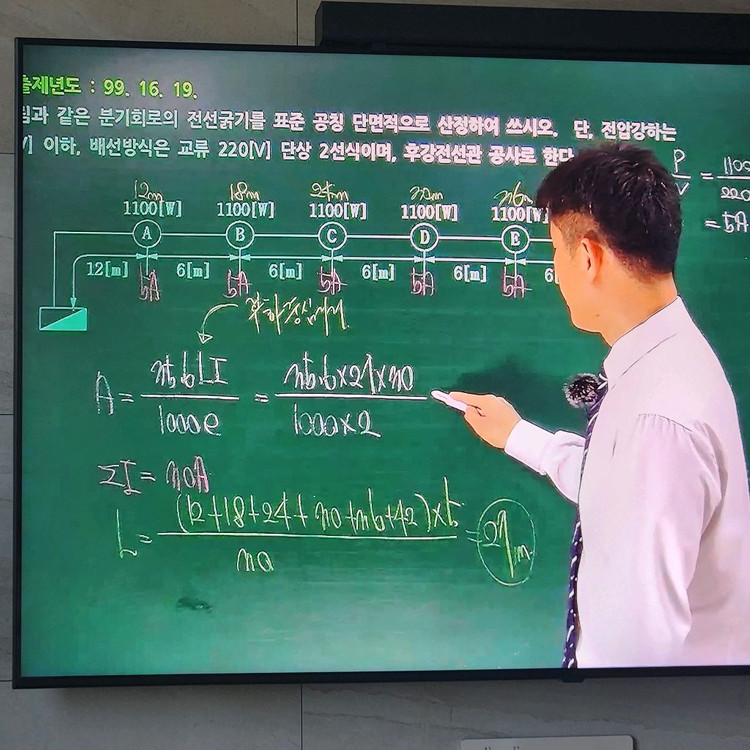 출제년도 : 99. 16. 19.
림과 같은 분기회로의 전선굵기를 표준 공칭 단면적으로 산정하여 쓰시오. 단, 전압강하는
V] 이하, 배선방식은 교류 220[V] 단상 2선식이며, 후강전선관 공사로 한다
P/V = 1100/220
= 5A
12m 18m 24m 30m 36m
1100[W] 1100[W] 1100[W] 1100[W] 1100[W]
A B C D E
12[m] 6[m] 6[m] 6[m] 6[m] 6[
5A 5A 5A 5A 5A
부하중심까지
A = 35.6LI/1000e = 35.6×27×30/1000×2
ΣI = 30A
L = (12+18+24+30+36+42)×5/30 = 27m